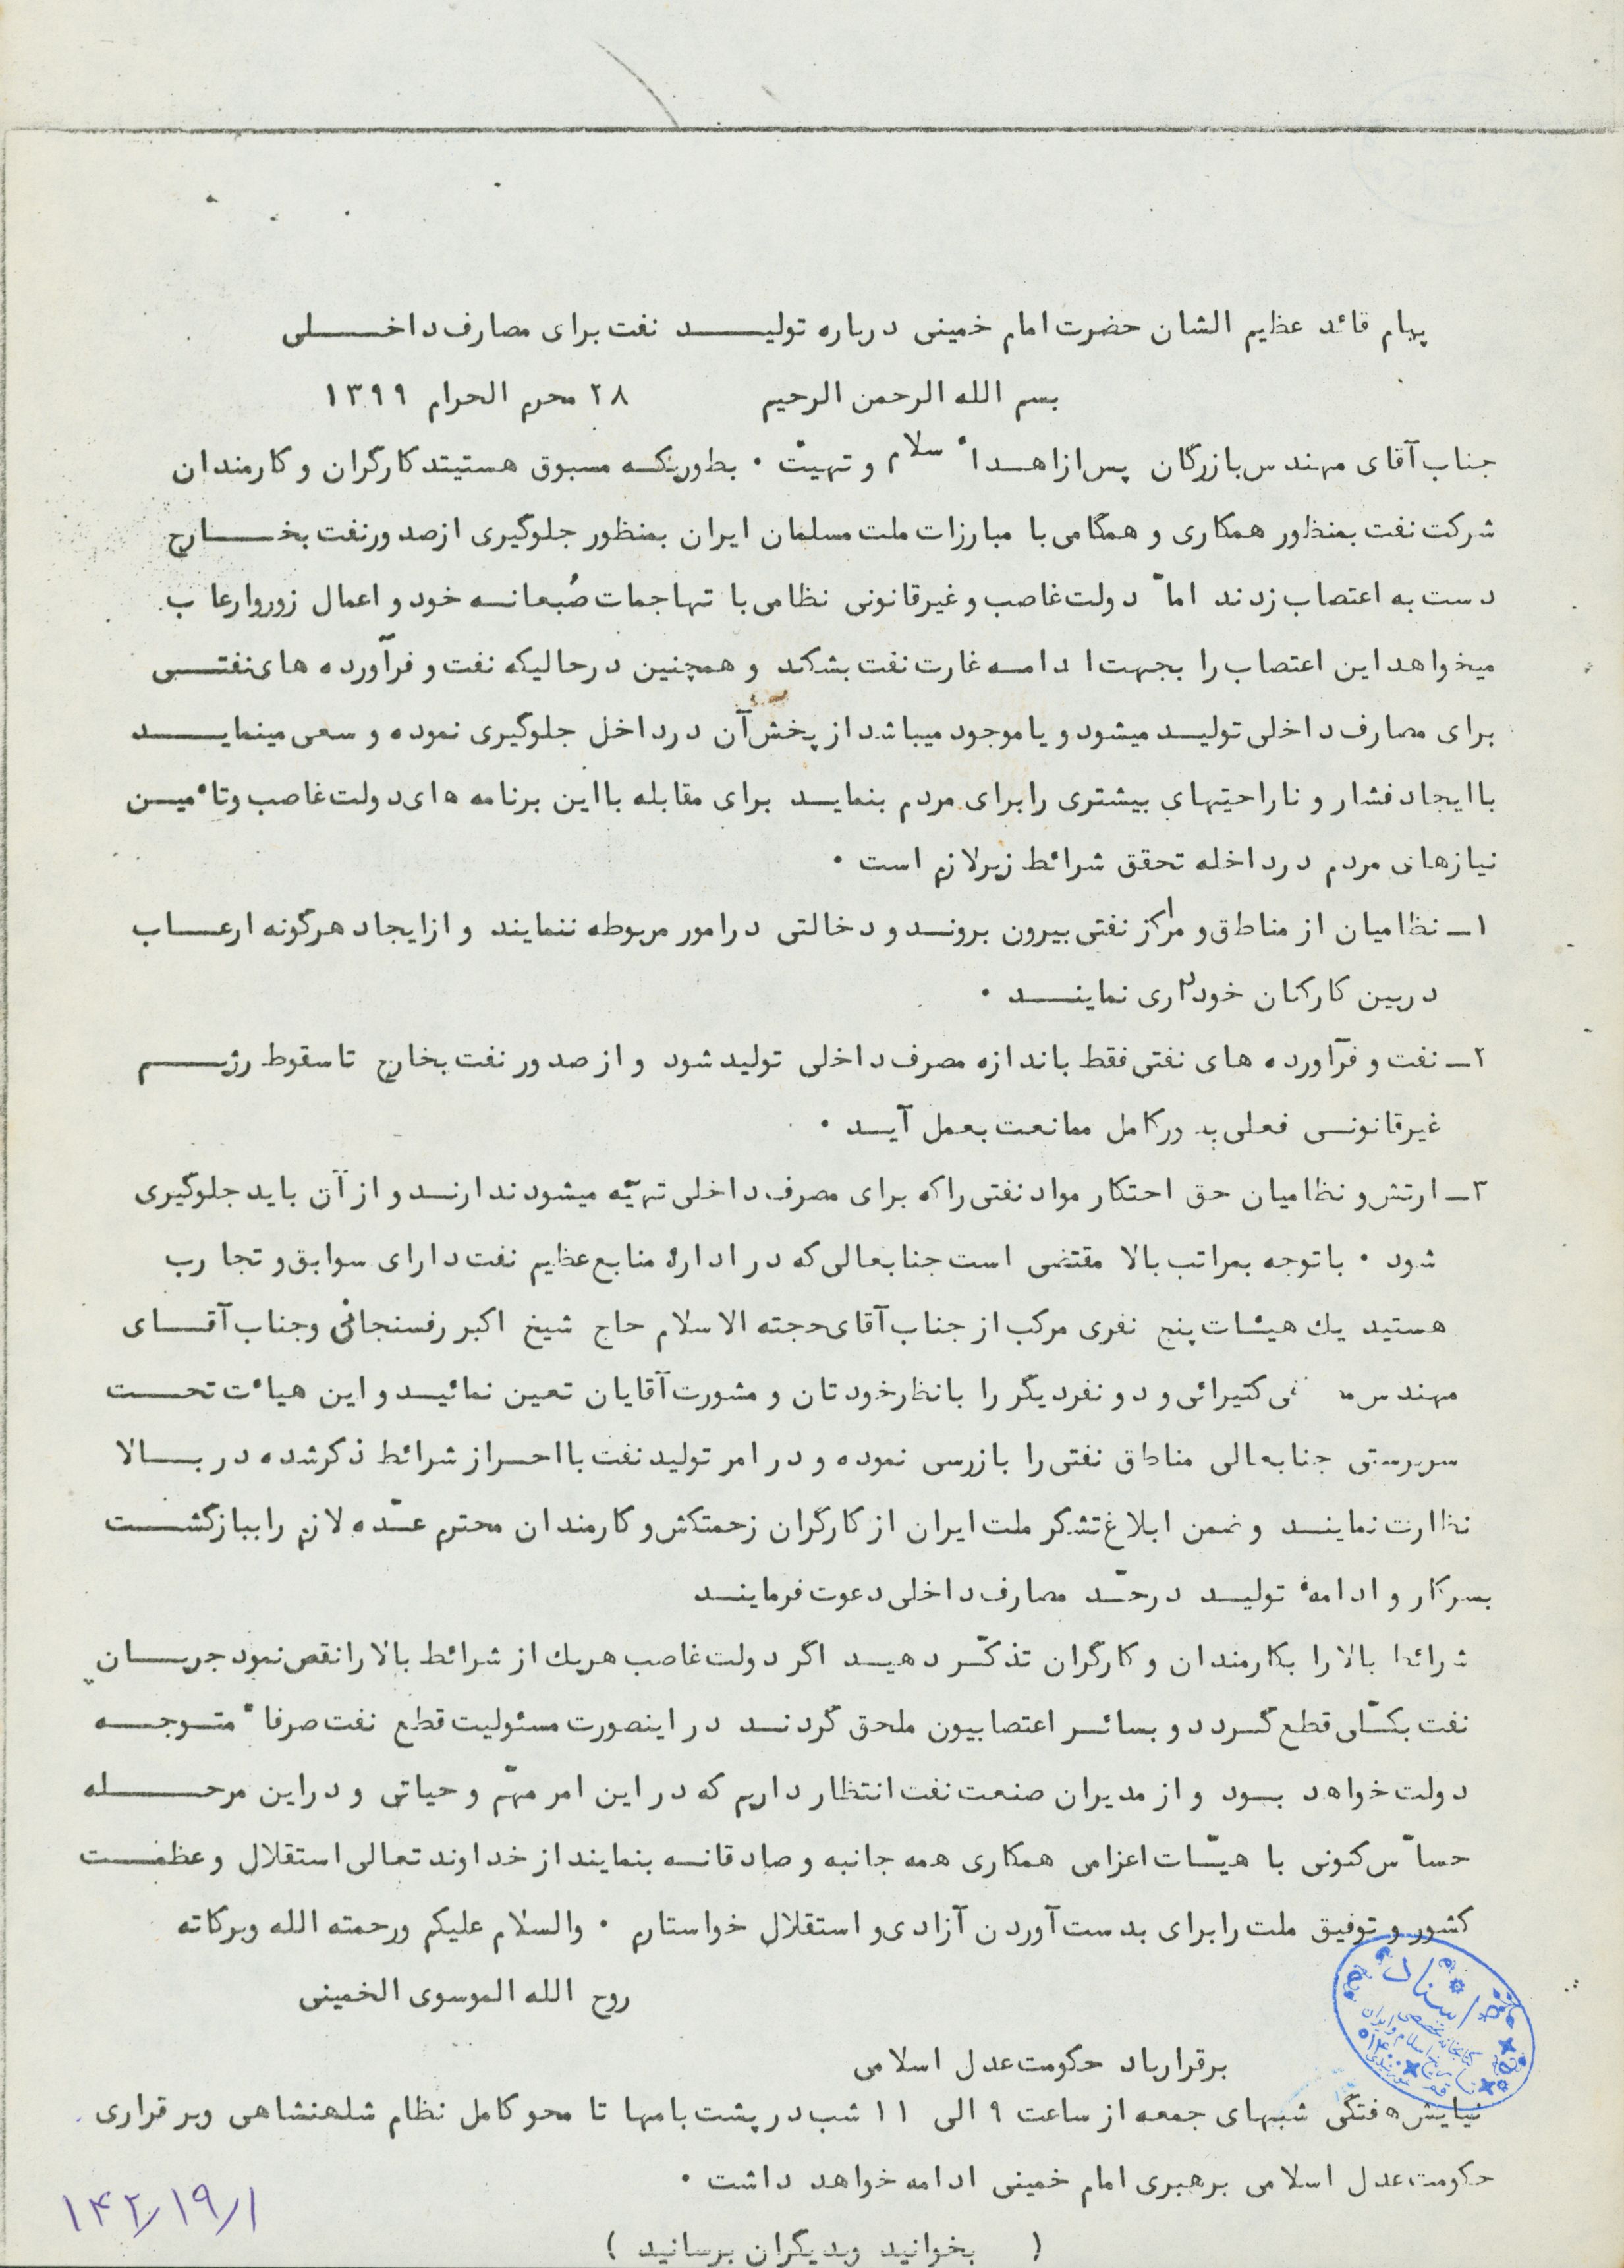 پیام قائد عظیم الشان حضرت امام خمینی درباره تولیـــد نفت برای مصارف داخـــلی
بسم الله الرحمن الرحیم ۲۸ محرم الحرام ۱۳۹۹
جناب آقای مهندس بازرگان پس از اهـداء سلام و تهیت ۰ بطوریکه مسبوق هستیتد کارگران و کارمندان
شرکت نفت بمنظور همکاری و همگامی با مبارزات ملت مسلمان ایران بمنظور جلوگیری از صدور نفت بخـــارج
دست به اعتصاب زدند اماّ دولت غاصب و غیرقانونی نظامی با تهاجمات صُبعانه خود و اعمال زور وارعاب
میخواهد این اعتصاب را بجهت ادامه غارت نفت بشکند و همچنین درحالیکه نفت و فرآورده های نفتـــی
برای مصارف داخلی تولیـد میشود و یا موجود میباشد از پخش آن در داخل جلوگیری نموده و سعی مینمایـــد
با ایجاد فشار و ناراحتیهای بیشتری را برای مردم بنمایـد برای مقابله با این برنامه های دولت غاصب وتاٴمیـن
نیازهای مردم در داخله تحقق شرائط زیر لازم است ۰
۱ـ نظامیان از مناطق و مراکز نفتی بیرون برونـد و دخالتی در امور مربوطه ننمایند و از ایجاد هرگونه ارعـاب
در بین کارکنان خودداری نماینـــد ۰
۲ـ نفت و فرآورده های نفتی فقط باندازه مصرف داخلی تولید شود و از صدور نفت بخارج تا سقوط رژیـــم
غیرقانونـی فعلی بـ ورکامل ممانعت بعمل آیـد ۰
۳ـ ارتش و نظامیان حق احتکار مواد نفتی را که برای مصرف داخلی تهیّه میشود ندارنـد و از آن باید جلوگیری
شود ۰ با توجه بمراتب بالا مقتضی است جنابعالی که در ادارهٔ منابع عظیم نفت دارای سوابق و تجارب
هستید یك هیئات پنج نفری مرکب از جناب آقای حجته الاسلام حاج شیخ اکبر رفسنجانی و جناب آقـــای
مهندس کتیرائی و دو نفر دیگر را با نظر خودتان و مشورت آقایان تعین نمائیـد و این هیاٴت تحـــت
سرپرستی جنابعالی مناطق نفتی را بازرسی نموده و در امر تولید نفت با احـراز شرائط ذکر شده در بـــالا
نظارت نماینـد و ضمن ابلاغ تشکر ملت ایران از کارگران زحمتکش و کارمندان محترم عـدّه لازم را ببازگشـــت
بسرکار و ادامهٔ تولیـد در حـدّ مصارف داخلی دعوت فرماینـد
شرائط بالا را بکارمندان و کارگران تذکّـر دهیـد اگر دولت غاصب هریك از شرائط بالا را نقص نمود جریـــان
نفت بکـلّی قطع گـردد و بسائـر اعتصابیون ملحق گردنـد در اینصورت مسئولیت قطع نفت صرفاٴ متـوجـــه
دولت خواهد بـود و از مدیران صنعت نفت انتظار داریم که در این امر مهّم و حیاتی و دراین مرحـــله
حساّس کنونی با هیئات اعزامی همکاری همه جانبه و صادقانـه بنمایند از خداوند تعالی استقلال و عظمـــت
کشور و توفیق ملت را برای بدست آوردن آزادی و استقلال خواستارم ۰ والسلام علیکم ورحمته الله وبرکاته
روح الله الموسوی الخمینی
برقرار باد حکومت عدل اسلامی
نیایش هفتگی شبهای جمعه از ساعت ۹ الی ۱۱ شب در پشت بامها تا محو کامل نظام شلهنشاهی وبرقراری
حکومت عدل اسلامی برهبری امام خمینی ادامه خواهد داشت ۰
( بخوانید وبدیگران برسانید )
اسناد
کتابخانه تخصصی
تاریخ اسلام و ایران
۱۴۲/۱۹/۱